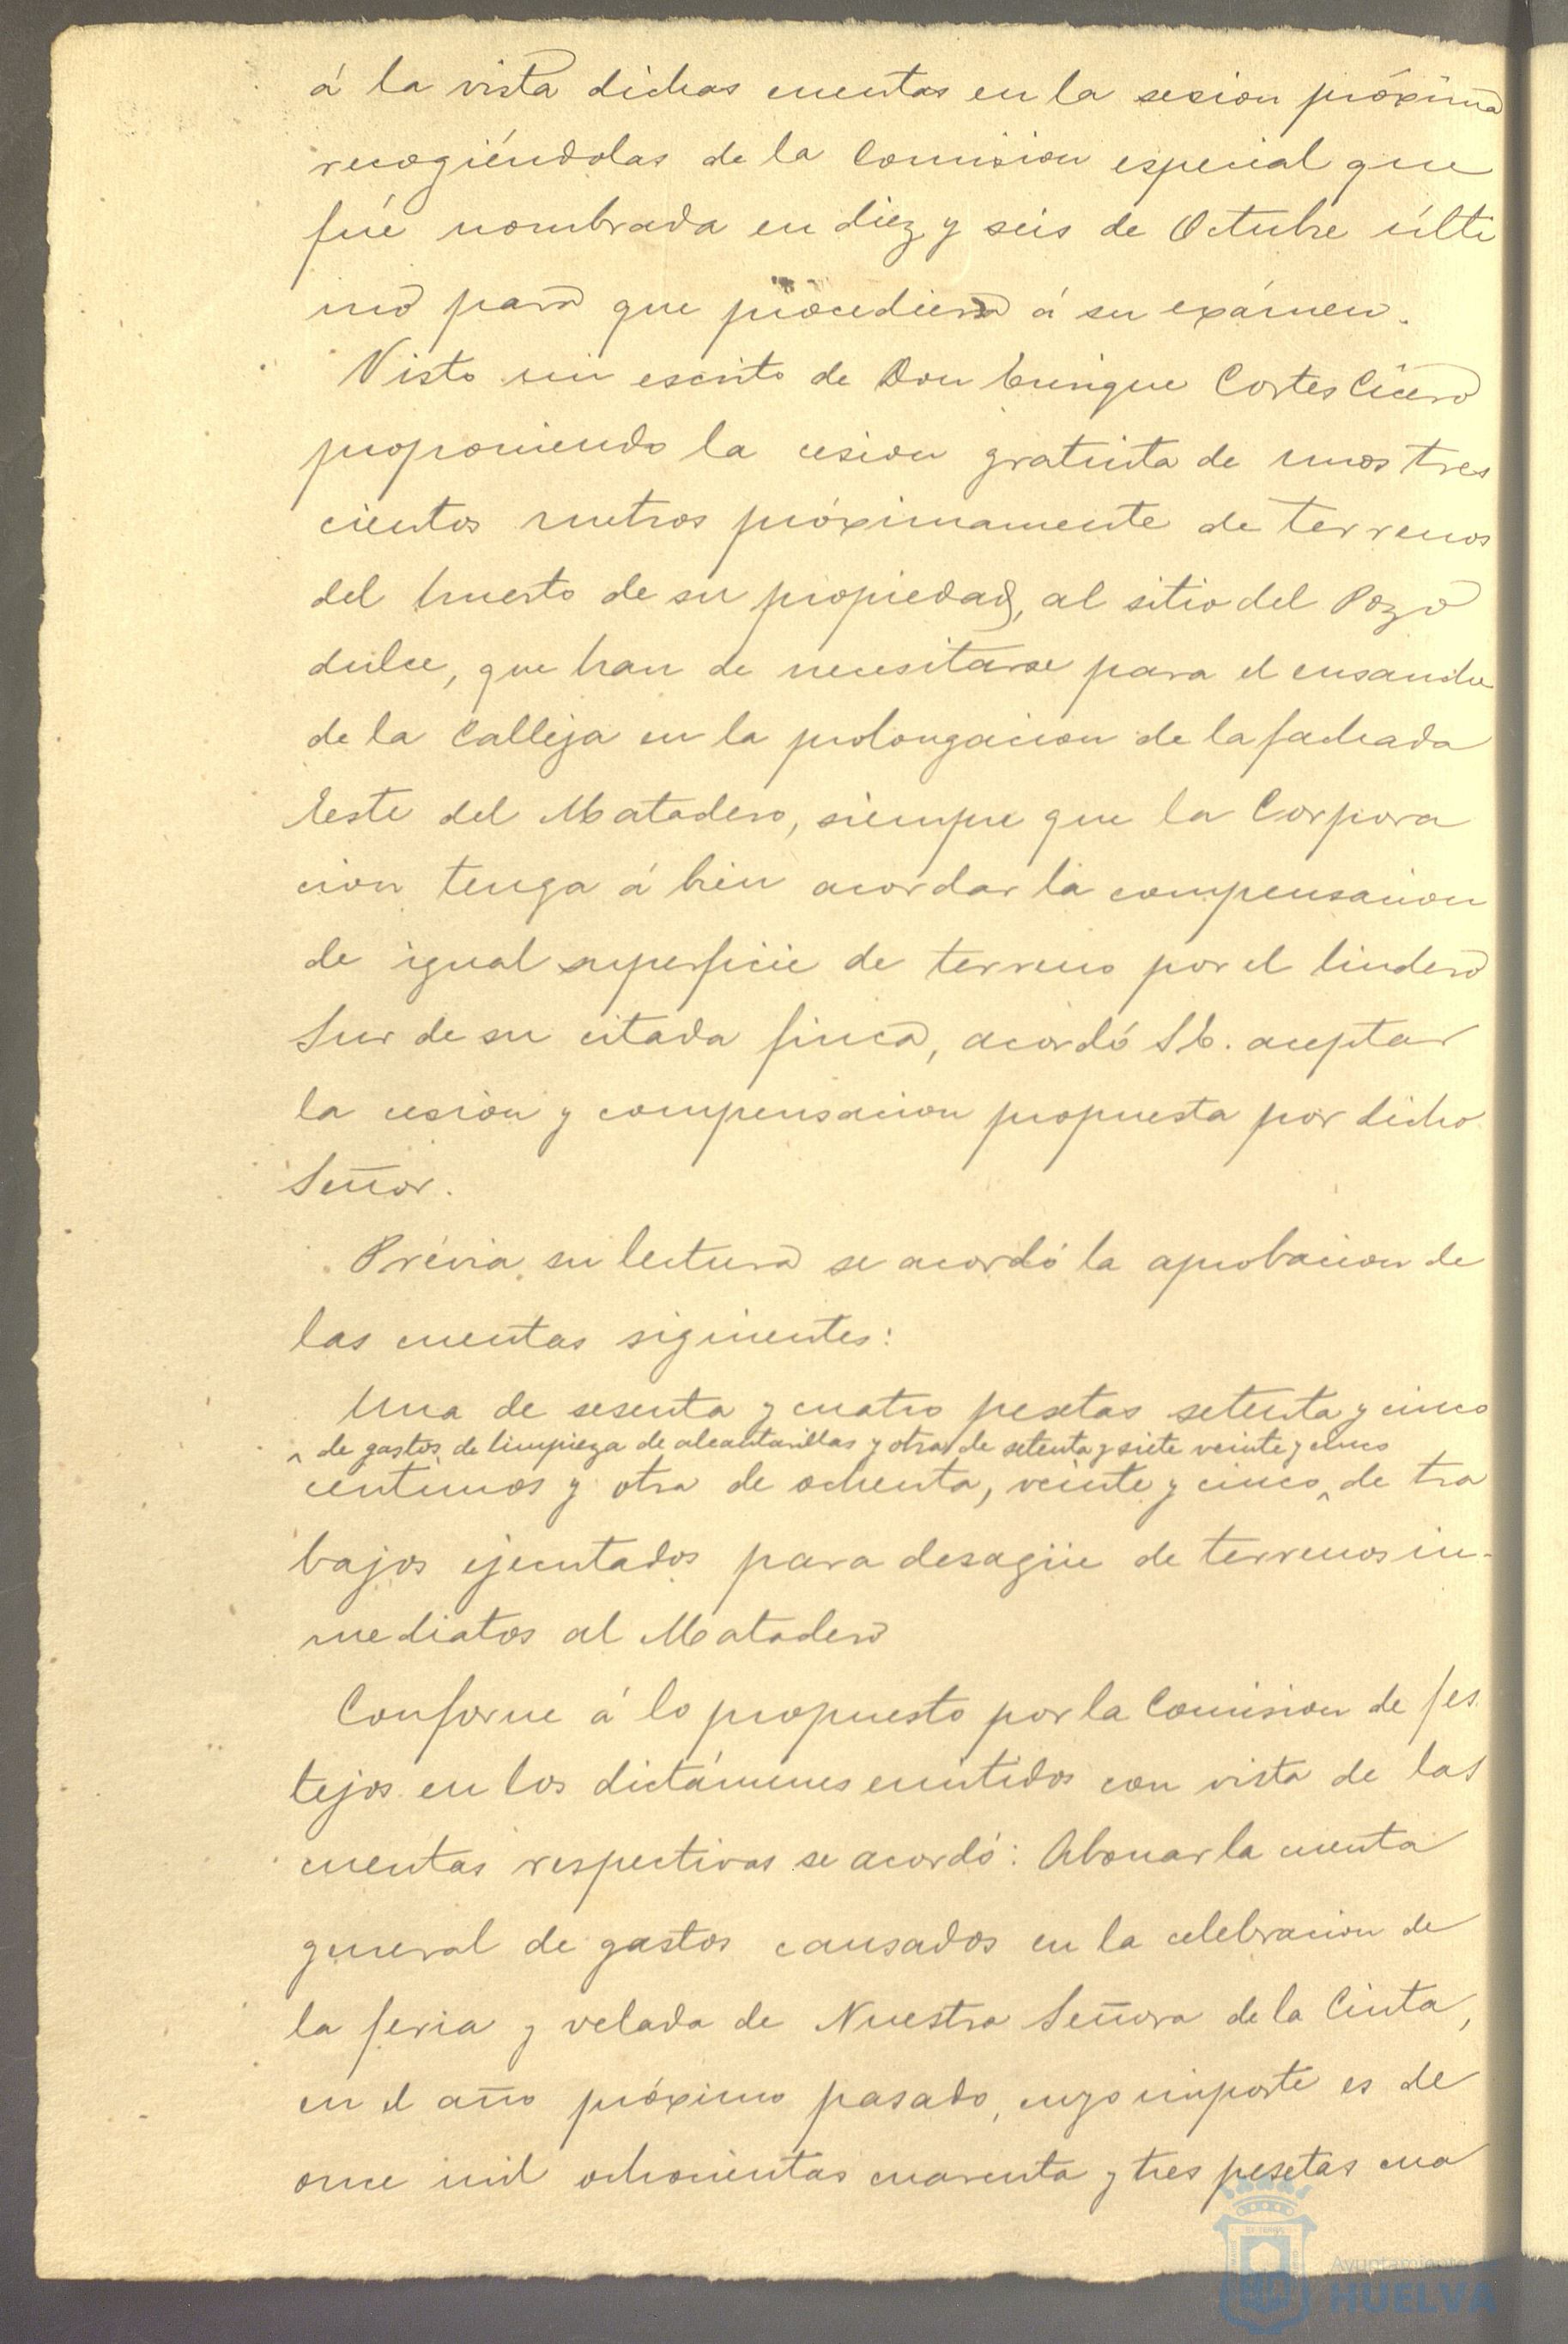 á la vista dichas cuentas en la sesion próxima
recogiéndolas de la Comision especial que
fué nombrada en diez y seis de Octubre últi
mo para que procediera á su exámen.
Visto un escrito de Don Enrique Cortes Cicero
proponiendo la cesion gratuita de unos tres
cientos metros próximamente de terrenos
del huerto de su propiedad, al sitio del Pozo
dulce, que han de necesitarse para el ensanche
de la Calleja en la prolongacion de la fachada
Este del Matadero, siempre que la Corpora
cion tenga á bien acordar la compensacion
de igual superficie de terreno por el lindero
Sur de su citada finca, acordó S.E. aceptar
la cesion y compensacion propuesta por dicho
Señor.
Prévia su lectura se acordó la aprobacion de
las cuentas siguientes:
Una de sesenta y cuatro pesetas setenta y cinco
^ de gastos de limpieza de alcantarillas y otra de setenta y siete veinte y cinco
centimos y otra de ochenta, veinte y cinco ^ de tra
bajos ejecutados para desagüe de terrenos in-
mediatos al Matadero
Conforme á lo propuesto por la Comision de fes
tejos en los dictámenes emitidos con vista de las
cuentas respectivas se acordó: Abonar la cuenta
general de gastos causados en la celebracion de
la feria y velada de Nuestra Señora de la Cinta,
en el año próximo pasado, cuyo importe es de
once mil ochocientas cuarenta y tres pesetas cua
Ayuntamiento
HUELVA